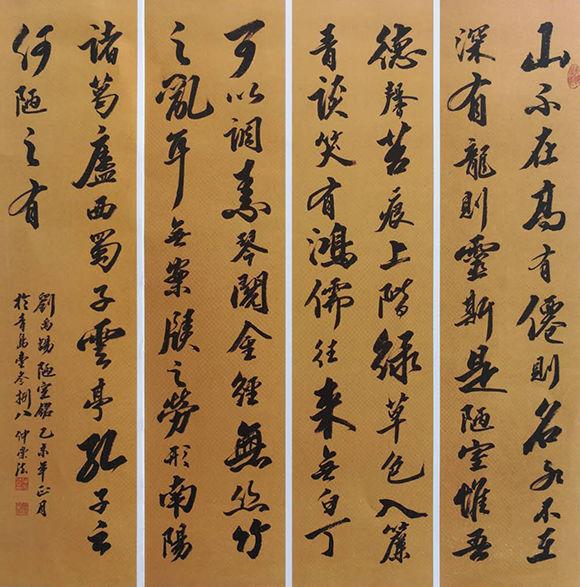 山不在高有僊則名水不在
深有龍則靈斯是陋室惟吾
德馨苔痕上階緑草色入簾
青談笑有鴻儒往來無白丁
可以調素琴閱金經無絲竹
之亂耳無案牘之勞形南陽
諸葛廬西蜀子雲亭孔子云
何陋之有
劉禹錫陋室銘乙未年正月
於青島壹叁捌八仲崇法